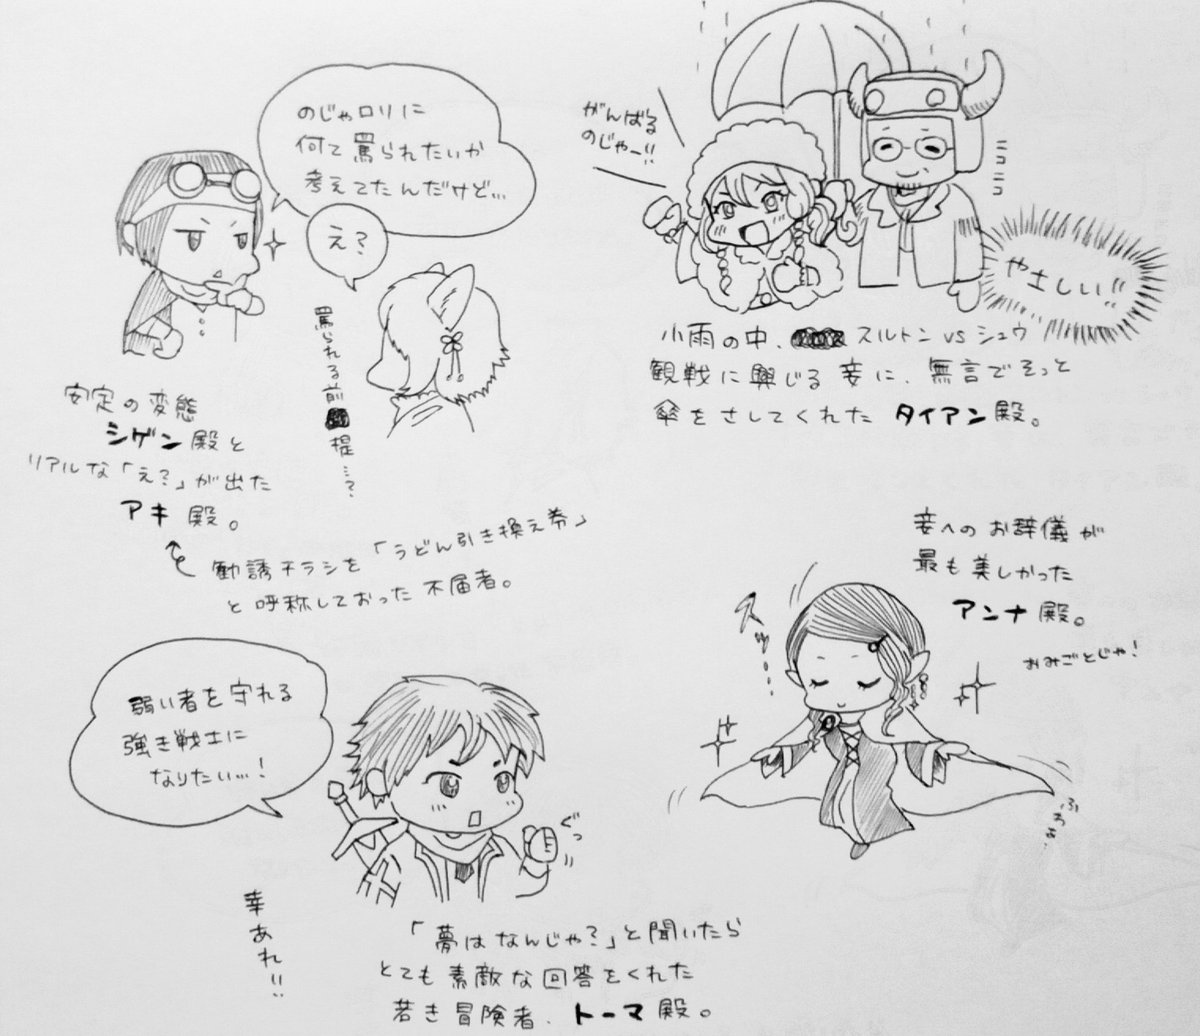 のじゃロリに
何て罵られたいか
考えてたんだけど…
え?
罵られる前提…?
安定の変態
シゲン殿と
リアルな「え?」が出た
アキ殿。
勧誘チラシを「うどん引き換え券」
と呼称しておった不届者。
がんばる
のじゃー!!
ニコニコ
やさしい!!
小雨の中、スルトンvsシュウ
観戦に興じる妾に、無言でそっと
傘をさしてくれたタイアン殿。
妾へのお辞儀が
最も美しかった
アンナ殿。
おみごとじゃ!
スッ…
ふわぁ
弱い者を守れる
強き戦士に
なりたい…!
ぐっ
幸あれ!!
「夢はなんじゃ?」と聞いたら
とても素敵な回答をくれた
若き冒険者、トーマ殿。